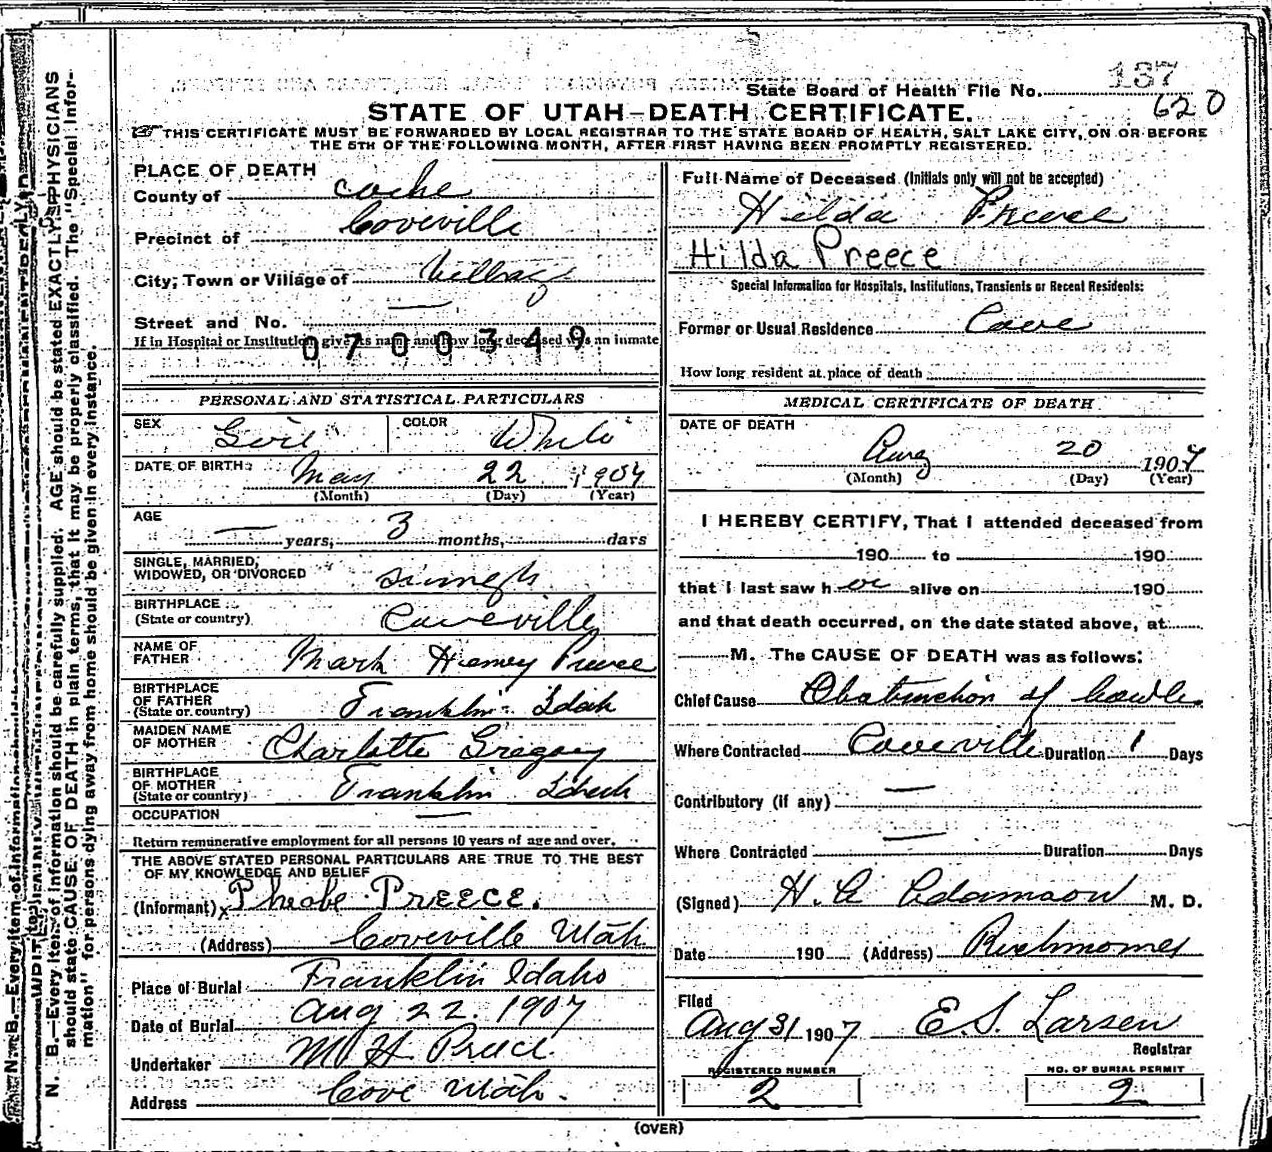 137
State Board of Health File No.
620
STATE OF UTAH—DEATH CERTIFICATE.
THIS CERTIFICATE MUST BE FORWARDED BY LOCAL REGISTRAR TO THE STATE BOARD OF HEALTH, SALT LAKE CITY, ON OR BEFORE
THE 5TH OF THE FOLLOWING MONTH, AFTER FIRST HAVING BEEN PROMPTLY REGISTERED.
PLACE OF DEATH
County of Cache
Precinct of Coveville
City, Town or Village of Village
Street and No. —
If in Hospital or Institution give its name and how long deceased was an inmate
0700349
Full Name of Deceased (Initials only will not be accepted)
Hilda Preece
Hilda Preece
Special Information for Hospitals, Institutions, Transients or Recent Residents:
Former or Usual Residence Cove
How long resident at place of death
PERSONAL AND STATISTICAL PARTICULARS
SEX Girl COLOR White
DATE OF BIRTH: May 22 1907
(Month) (Day) (Year)
AGE — years, 3 months, days
SINGLE, MARRIED,
WIDOWED, OR DIVORCED
BIRTHPLACE Coveville
(State or country)
NAME OF
FATHER Mark Henry Preece
BIRTHPLACE
OF FATHER
(State or country) Franklin Idah
MAIDEN NAME
OF MOTHER Charlotte Gregory
BIRTHPLACE
OF MOTHER
(State or country) Franklin
OCCUPATION —
Return remunerative employment for all persons 10 years of age and over.
THE ABOVE STATED PERSONAL PARTICULARS ARE TRUE TO THE BEST
OF MY KNOWLEDGE AND BELIEF
(Informant) x Pheobe PREECE.
(Address) Coveville Utah
Place of Burial Franklin Idaho
Date of Burial Aug 22. 1907
Undertaker M H Preece
Address Cove Utah.
MEDICAL CERTIFICATE OF DEATH
DATE OF DEATH
Aug 20 1907
(Month) (Day) (Year)
I HEREBY CERTIFY, That I attended deceased from
190 to 190
that I last saw her alive on 190
and that death occurred, on the date stated above, at
M. The CAUSE OF DEATH was as follows:
Chief Cause Obstruction of bowels
Where Contracted Coveville Duration 1 Days
Contributory (if any) —
Where Contracted — Duration Days
(Signed) H. A Adamson M. D.
Date 190 (Address) Richmond
Filed
Aug 31 1907 E. S. Larsen
Registrar
REGISTERED NUMBER
2
NO. OF BURIAL PERMIT
2
(OVER)
N. B.—Every item of information should be carefully supplied. AGE should be stated EXACTLY. PHYSICIANS
should state CAUSE OF DEATH in plain terms, that it may be properly classified. The "Special Infor-
mation" for persons dying away from home should be given in every instance.
N. B.—Every item of information should be